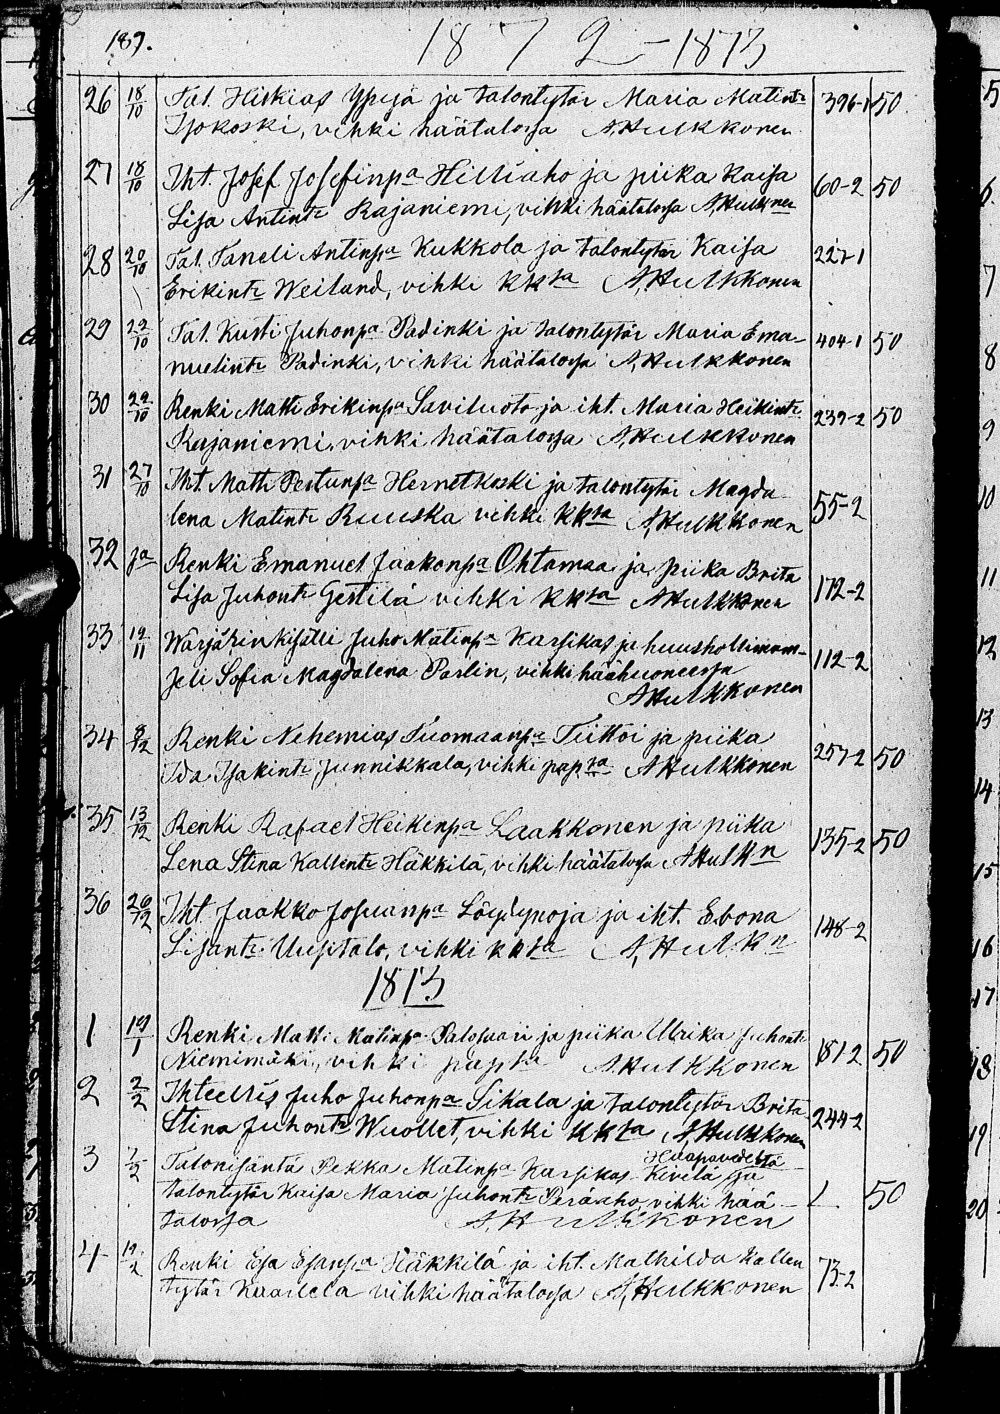 189.
1872-1873
26 18/10 Tal. Hiskias Ypyjä ja talontytär Maria Matint: 396-1 50
Isokoski, vihki häätalossa A, Hulkkonen
27 18/10 Iht. Josef Josefinpa Hilliaho ja piika Kaisa 60-2 50
Lisa Antint: Rajaniemi, vihki häätalossa A, Hulknen
28 20/10 Tal. Taneli Antinpa Kukkola ja talontytär Kaisa 227-1
Erikint: Weiland, vihki kksa A, Hulkkonen
29 22/10 Tal. Kusti Juhonpa Padinki ja talontytär Maria Ema- 404-1 50
nuelint: Padinki, vihki häätalossa A, Hulkkonen
30 22/10 Renki Matti Erikinpa Saviluoto ja iht. Maria Heikint: 239-2 50
Rajaniemi, vihki häätalossa A, Hulkkonen
31 27/10 Iht. Matti Pertunpa Hernetkoski ja talontytär Magda- 55-2
lena Matint: Ruuska vihki kksa A, Hulkkonen
32 ja Renki Emanuel Jaakonpa Ohtamaa ja piika Brita 172-2
Lisa Juhont: Gestilä vihki kksa A Hulkkonen
33 19/11 Wärjärinkisälli Juho Matinpa Karsikas ja huushollimam- 112-2
seli Sofia Magdalena Parlin, vihki häähuoneessa
A Hulkkonen
34 8/12 Renki Nehemias Tuomaanpa Tiittoi ja piika 257-2 50
Ida Isakint: Junnikkala, vihki papsa A Hulkkonen
35 13/12 Renki Rafael Heikinpa Laakkonen ja piika 135-2 50
Lena Stina Kallent: Häkkilä, vihki häätalossa A Hulkn
36 26/12 Iht. Jaakko Josuanpa Löytynoja ja iht. Ebona 148-2
Lisant: Uusitalo, vihki kksa A, Hulkn
1873
1 19/1 Renki Matti Matinpa Palosaari ja piika Ulrika Juhont: 181-2 50
Niemimäki, vihki papsa A Hulkkonen
2 2/2 Ihtellis Juho Juhonpa Sikala ja talontytär Brita 244-2
Stina Juhont: Wuollet, vihki kksa A, Hulkkonen
Haapavedeltä
3 7/2 Talonisäntä Pekka Matinpa Karsikas Kivelä ja
talontytär Kaisa Maria Juhont: Peräaho, vihki hää- 50
talossa A, Hulkkonen
4 12/2 Renki Esa Esanpa Häkkilä ja iht. Mathilda Kallen 73-2
tytär Kaarlela vihki häätalossa A, Hulkkonen